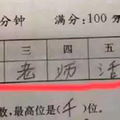 分钟 满分:100
三 四 五
老 师 活
数,最高位是(千)位。